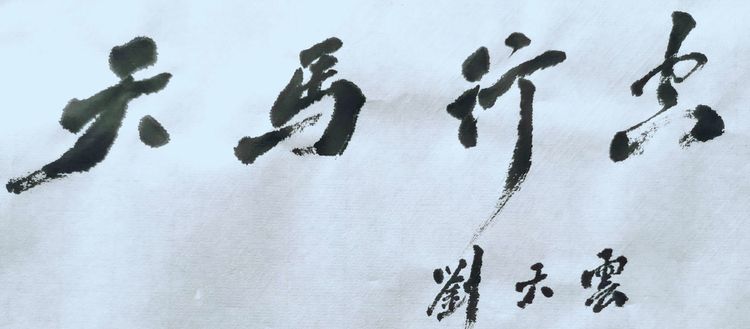 天馬行空
劉天雲